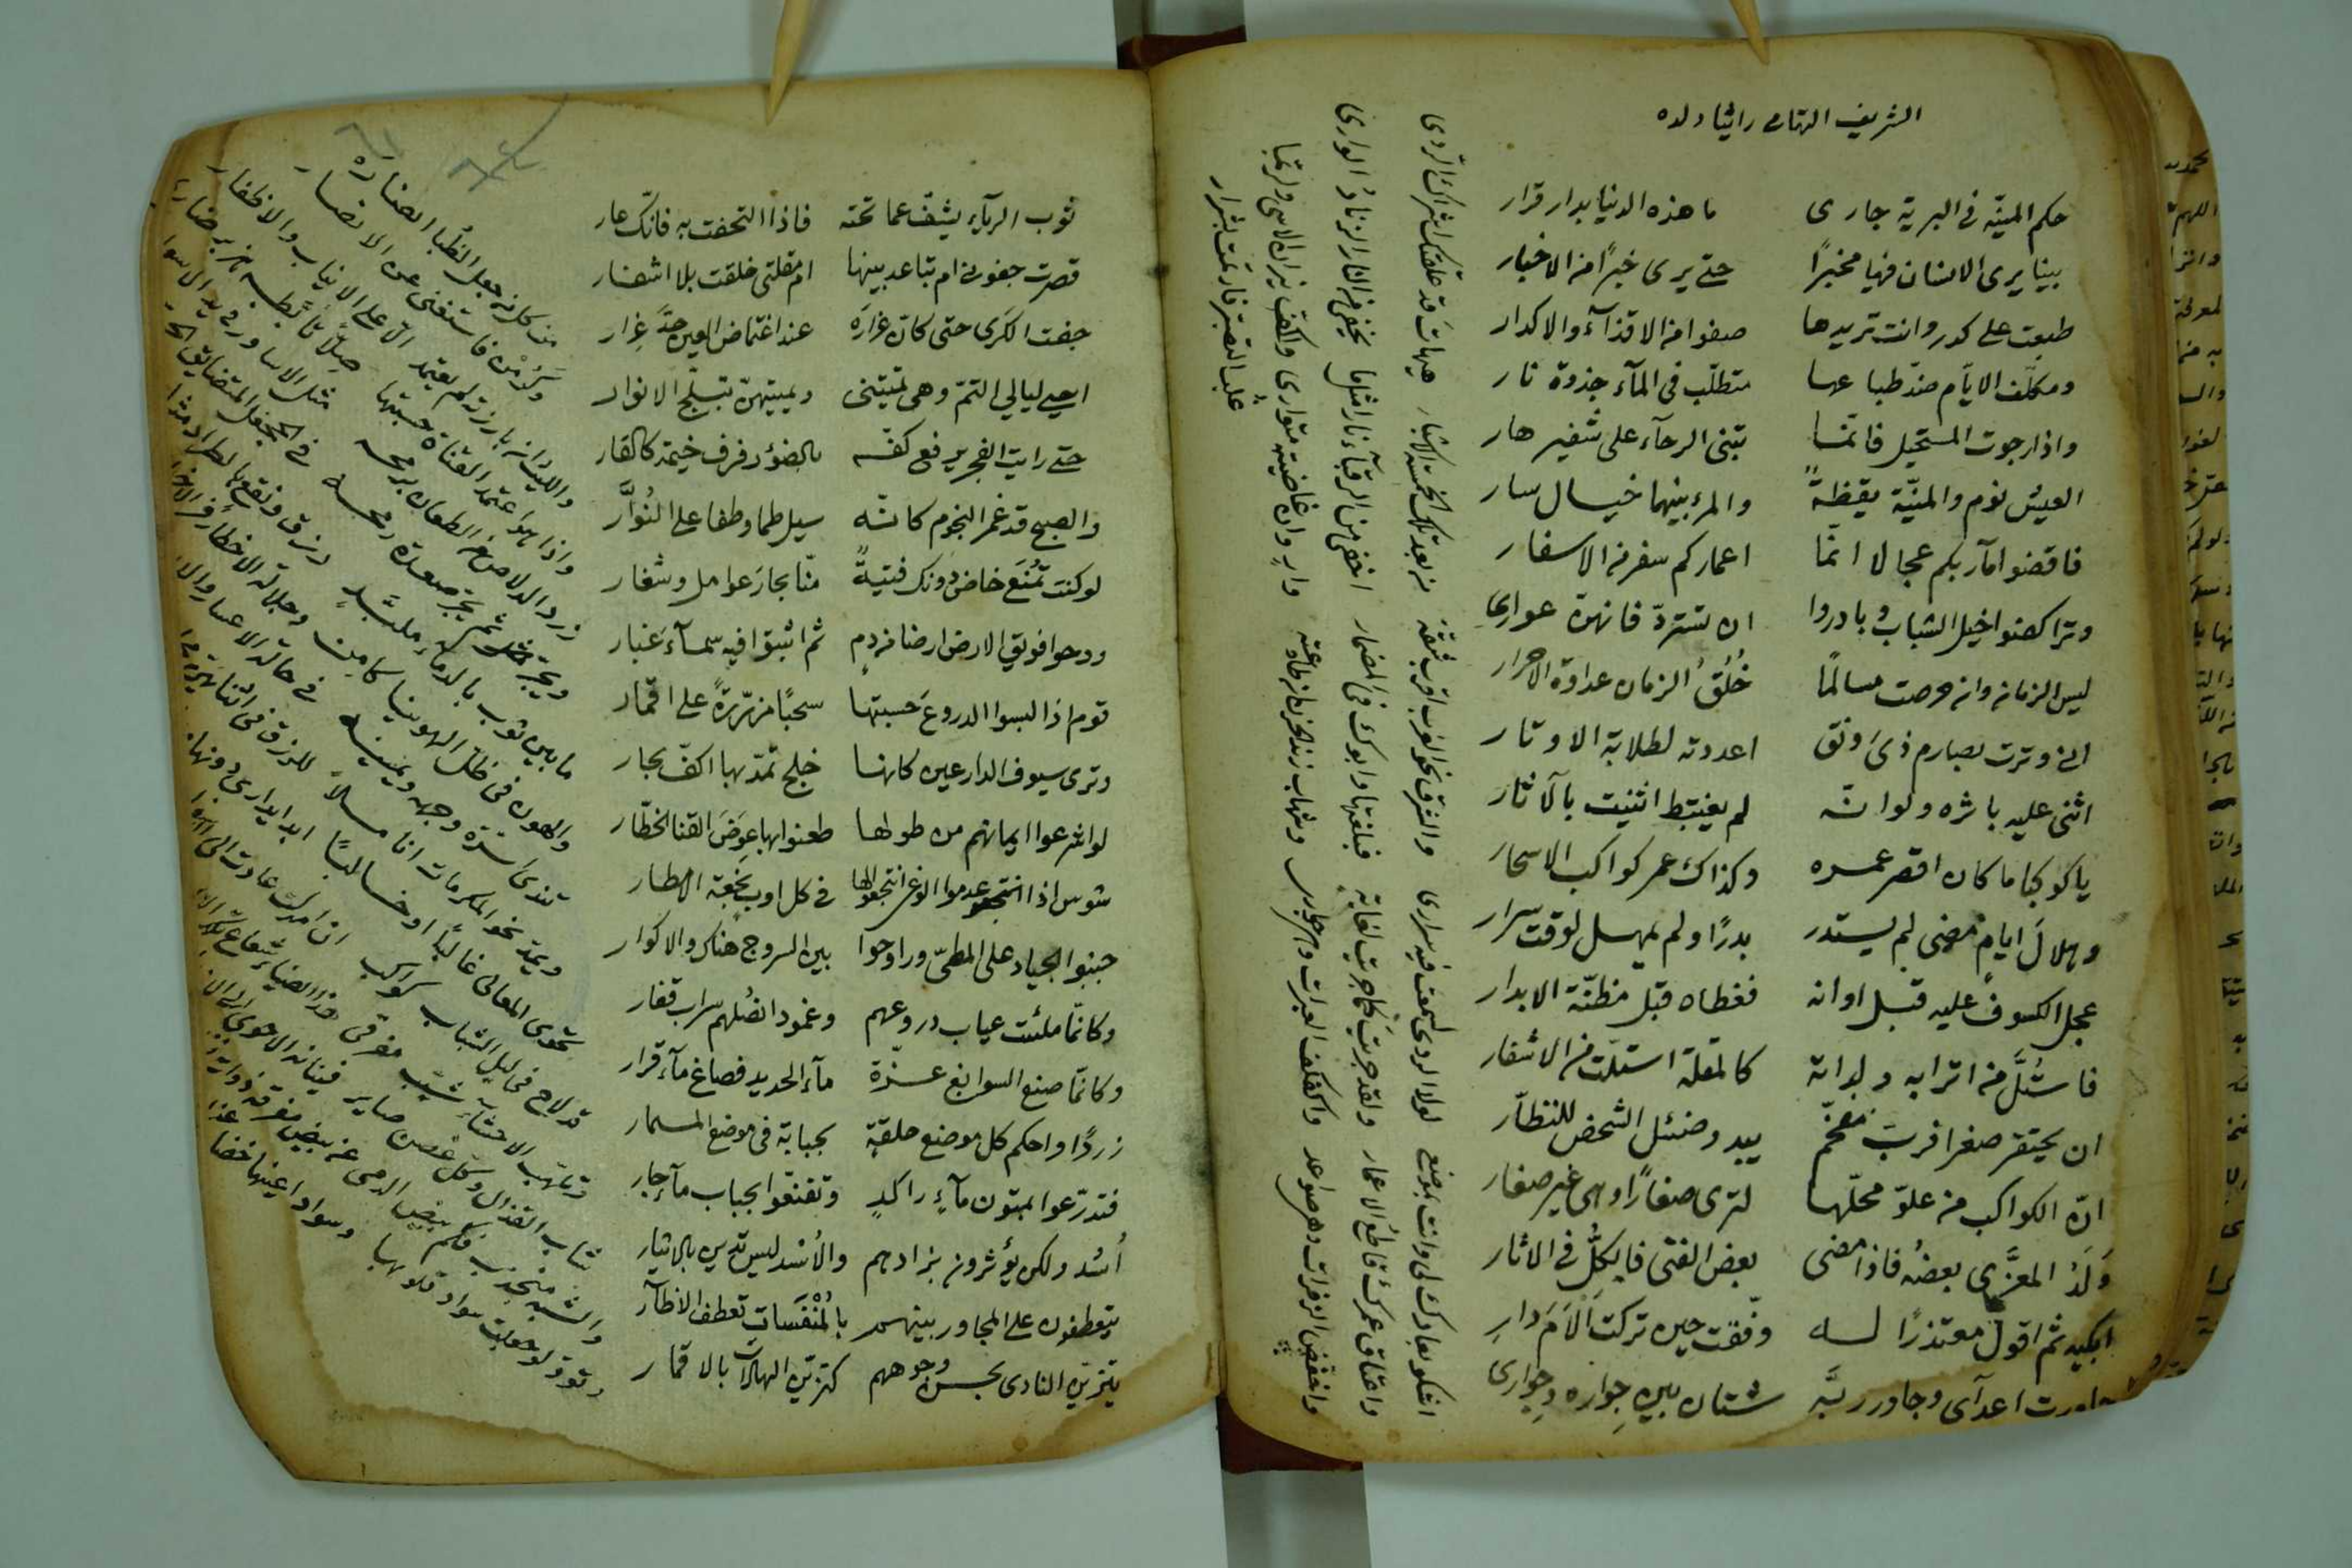 الشريف التهامى راثيا ولده
حكم المنيّة فى البرية جارى ما هذه الدنيا بدار قرار
بينا يرى الانسان فيها مخبرًا حتى يرى خبرًا من الاخبار
طبعت على كدر وانت تريدها صفوا من الاقذآء والاكدار
ومكلّف الايّام ضدّ طباعها متطلّب فى المآء جذوة نار
واذا رجوت المستحيل فانما تبنى الرجآء على شفير هار
العيش نوم والمنيّة يقظةً والمرء بينهما خيال سار
فاقضوا مآربكم عجالا انمّا اعماركم سفر من الاسفار
وتراكضوا خيل الشباب وبادروا ان تستردّ فانهنّ عوارى
ليس الزمان وان حرصت مسالمًا خُلُقُ الزمان عداوة الاحرار
انى وترت بصارم ذى رونق اعددته لطلابة الاوتار
اثنى عليه باثره ولو انّه لم يغتبط اثنيت بالآثار
ياكوكبا ما كان اقصر عمره وكذاك عمر كواكب الاسحار
وهلالَ ايام مضى لم يستدر بدرًا ولم يمهل لوقت سرار
عجل الكسوف عليه قبل اوانه فغطاه قبل مظنّة الابدار
فاستُلَّ من اترابه ولداته كالمقلة استلّت من الاشفار
ان يحتقر صغرا فربّ مفخّم يبدو ضئيل الشخص للنظّار
انّ الكواكب من علوّ محلّها لترى صغارًا وهى غير صغار
وَلَدُ المعزَّى بعضُه فاذا مضى بعض الفتى فالكلُّ فى الاثار
ابكيه ثم اقول معتذرًا له وفّقت حين تركت الأَمَ دارِ
جاورت اعدآى وجاور ربَّه شتان بين جِواره وجِوارى
اشكو بعادك لى وانت بموضع لولا الردى لسمعت فيه سرارى والشرق نحو الغرب اقرب شقّة من بعد تلك الخمسة الاشبار هيهات قد علقتك اشراك الردى
واعتاق عمرك قاطع الاعمار ولقد جريت كما جريت لغاية فبلغتها وابوك فى المضمار اخفى من الرقبآء نارا مثلما يخفى من النار الزناد الوارى
واخفّض الزفرات وهى صواعد واكفكف العبرات وهى جوارى وشهاب زند الحزن ان طاوعته وارٍ وان عاصيته متوارى واكفّ نيران الاسى ولربّما
غلب التصبّر فارتمت بشرار
ثوب الريآء يشفّ عما تحته فاذا التحفت به فانّك عار
قصرت جفونى ام تباعد بينها ام مقلتى خلقت بلا اشفار
جفت الكرى حتى كانّ غرارَه عند اغتماض العين حدَّ غِرار
احيى ليالى التمّ وهى تميتنى ويميتهنّ تبلّج الانوار
حتى رايت الفجر يرفع كفّه بالضوء رفرف خيمة كالقار
والصبح قد غمر النجوم كانّه سيل طما وطفا على النُوَّار
لو كنت تُمنَع خاض دونك فتيةً منّا بحارَ عوامل وشفار
ودحوا فويق الارض ارضا من دمٍ ثم انثنوا فيه سمآءَ غبار
قوم اذا لبسوا الدروعَ حسبتها سحبًا مزرّرةً على اقمار
وترى سيوف الدارعين كانها خلج تمدّ بها اكفّ بحار
لو اشرعوا ايمانهم من طولها طعنوا بها عِوَضَ القنا الخطّار
شوس اذا عدموا الوغى انتجعوا لها فى كل اوب نجعة الامطار
جنبوا الجياد على المطىّ وراوحوا بين السروج هناك والاكوار
وكانمّا ملئت عياب دروعهم وغمود انصُلهم سراب قفار
وكانمّا صنع السوابغ عزّة مآء الحديد فصاغ مآء قرار
زردًا واحكم كل موضع حلقة بحبابة فى موضع المسمار
فتدرّعوا بمتون مآءٍ راكدٍ وتقنعوا بحباب مآءٍ جار
أُسُد ولكن يؤثرون بزادهم والأُسْد ليس تدين بالايثار
يتعطفون على المجاور بينهم بالمُنْفَسات تعطف الاظآر
يتزيّن النادى بحسن وجوههم كتزيّن الهالات بالاقمار
من كل من جعل الظُّبا انصاره
وكرُمْن فاستغنى عن الانصار
والليث ان بارزته لم يعتمد الّا على الانياب والاظفار
واذا هو اعتقل القناة حسبتها صِلّا تأبّطه هزبر ضار
زرد الدلاص من الطعان برمحه مثل الاساور فى يد الاسوا
ويجرّ ثم يجرّ صعدة رمحه فى الجحفل المتضايق الجر
ما بين ثوب بالدماء ملبّدٍ زلق ونقع بالطراد مثا
والهون فى ظلّ الهوينا كامن وجلالة الاخطار فى الا
تندى اسرّة وجهه ويمينه فى حالة الاعسار والا
ويمدّ نحو المكرمات اناملاً للرزق فى اثنائهنّ
يحوى المعالى غالبًا او خالبًا ابدا يدارى دونها
قد لاح فى ليل الشباب كواكب ان امهلت عادت الى
وتلهّب الاحشاء شيّب مفرقى هذا الضياء شعاع تلك
شاب القذال وكل غصن صاير فينانه الاحوى الى الاز
والشبه منجذب فلم بيض الدمى عن بيض مفرقه ذوات
وتودّ لو جعلت سواد قلوبها وسواد اعينها خضا